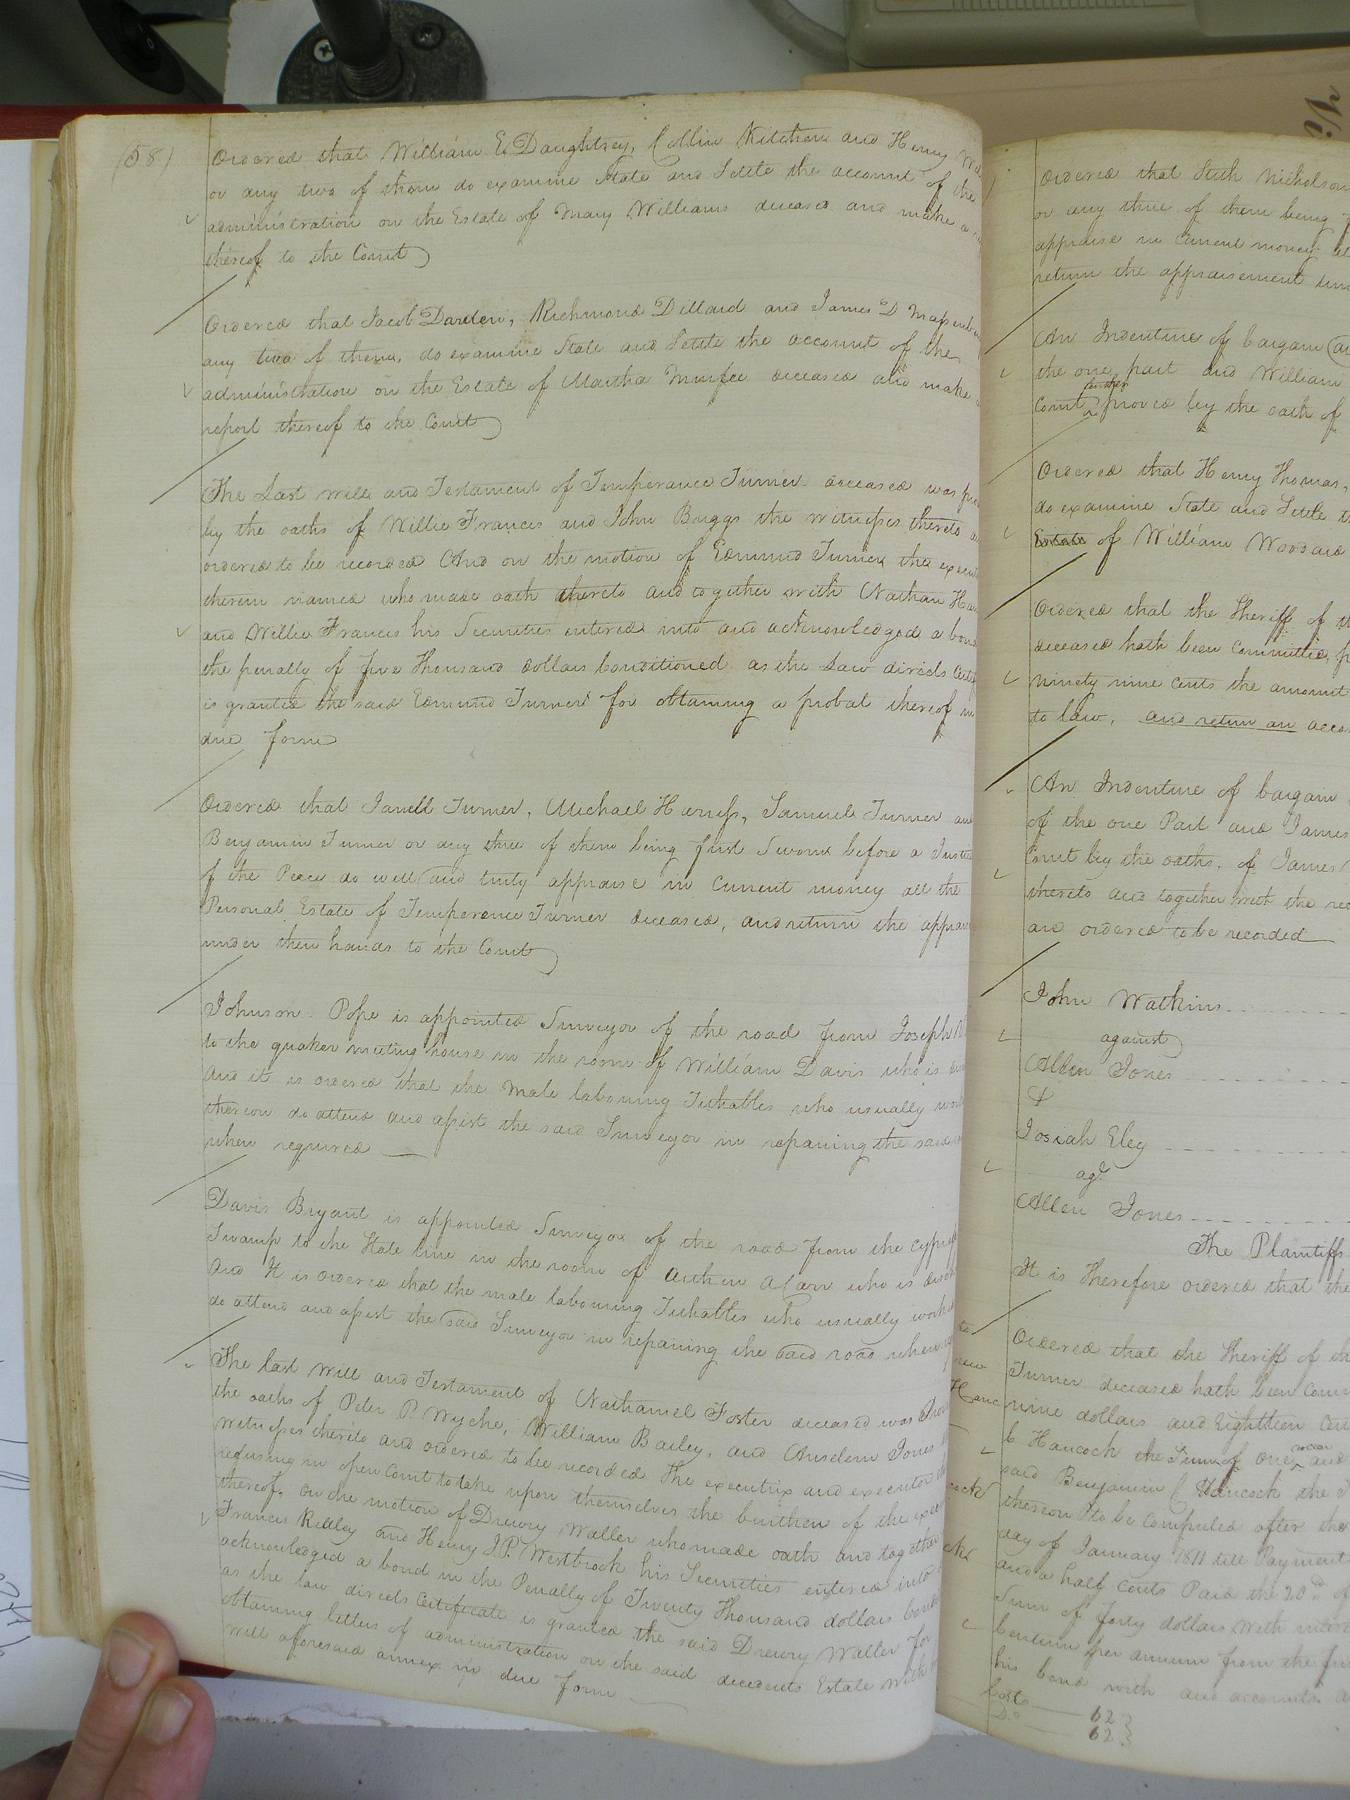 (58)
Ordered that William E. Daughtrey, Collin Kitchen and Henry
or any two of them do examine State and Settle the account of the
administration on the Estate of Mary Williams deceased and make a
thereof to the Court
Ordered that Jacob Darden, Richmond Dillard and James D Massenbu
any two of them, do examine State and Settle the account of the
administration on the Estate of Martha Murfee deceased and make
report thereof to the Court
The Last will and Testament of Temperance Turner deceased was
by the oaths of Willie Francis and John Briggs the witnesses thereto
ordered to be recorded And on the motion of Edmund Turner the
therein named who made oath thereto and together with Nathan
and Willie Francis his Securities entered into and acknowledged a bond
the penalty of five thousand dollars conditioned as the Law directs
is granted the said Edmund Turner for obtaining a probat thereof in
due form
Ordered that Turner, Michael Harriss, Samuel Turner and
Benjamin Turner or any three of them being first Sworn before a Justice
of the Peace do well and truly appraise in Current money all the
Personal Estate of Temperance Turner deceased, and return the
under their hands to the Court
Johnson Pope is appointed Surveyor of the road from Joseph
to the quaker meeting house in the room of William Davis who is
And it is ordered that the male labouring Tithables who usually
thereon do attend and assist the said Surveyor in repairing the said
when required
Davis Bryant is appointed Surveyor of the road from the cypress
Swamp to the State line in the room of who is
And It is ordered that the male labouring Tithables who usually
do attend and assist the said Surveyor in repairing the said road when
The last will and Testament of Nathaniel Foster deceased was
the oaths of Peter P. Wyche, William Bailey, and Anselem Jones
witnesses thereto and ordered to be recorded The executrix and executor
refusing in open Court to take upon themselves the burthen of the
thereof. On the motion of Drewry Waller who made oath and together
Francis Ridley and Henry J.P. Westbrook his Securities entered into
acknowledged a bond in the Penalty of Twenty thousand dollars
as the law directs certificate is granted the said Drewry Waller for
obtaining letters of administration on the said decedents Estate with
will aforesaid annex in due form
Ordered that Nicholson
or any three of them being
appraise in Current money
return the appraisement
An Indenture of bargain
the one part and William
Court further proved by the oath of
Ordered that Henry Thomas,
do examine State and Settle
Estate of William Woodard
Ordered that the Sheriff of
deceased hath been Committed,
Ninety nine cents the amount
to law, and return an
An Indenture of bargain
of the one Part and James
Court by the oaths of James
thereto and together with the
are ordered to be recorded
John Watkins
against
Allen Jones
&
Josiah Eley
agt
Allen Jones
The Plaintiffs
It is therefore ordered that the
Ordered that the Sheriff of
Turner deceased hath been
nine dollars and Eighteen
C Hancock the Sum of One and
said Benjamin C Hancock the
thereon to be Computed after the
day of January 1811 till Payment
and a half cents Paid the 20th of
Sum of forty dollars with
Centum per annum from the
his bond with and accounts
Cost 62
Do 62